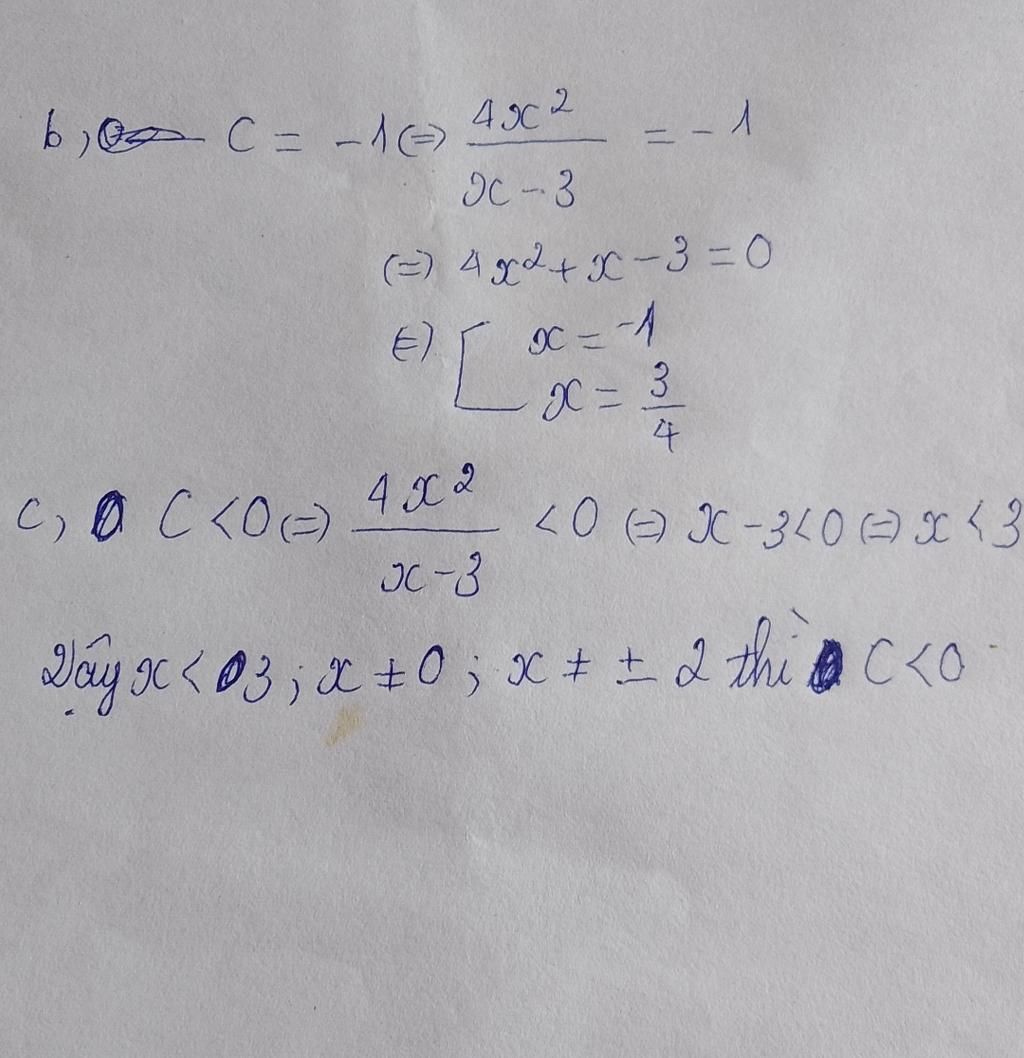 b, C = -1 (=) 4x² / x - 3 = -1
(=) 4x² + x - 3 = 0
(=) [ x = -1
x = 3/4
c, C < 0 (=) 4x² / x - 3 < 0 (=) x - 3 < 0 (=) x < 3
Vậy x < 3 ; x ≠ 0 ; x ≠ ± 2 thì C < 0